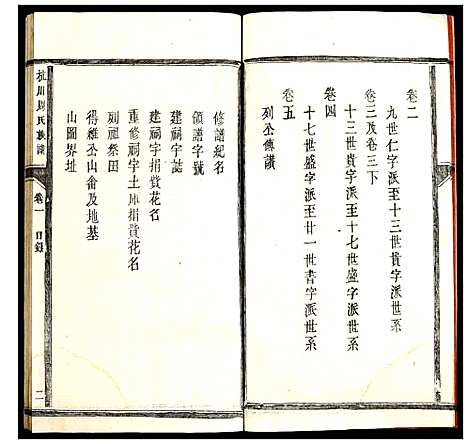 卷二
九世仁字派至十三世貴字派世系
卷三及卷三下
十三世貴字派至十七世盛字派世系
卷四
十七世盛字派至廿一世書字派世系
卷五
列公傳讚
修譜紀名
領譜字號
建祠字誌
建祠字捐貲花名
重修祠字土庫捐貲花名
列祖祭田
得雜公山畲及地基
山圖界址
杭川周氏族譜
卷一
目錄
二